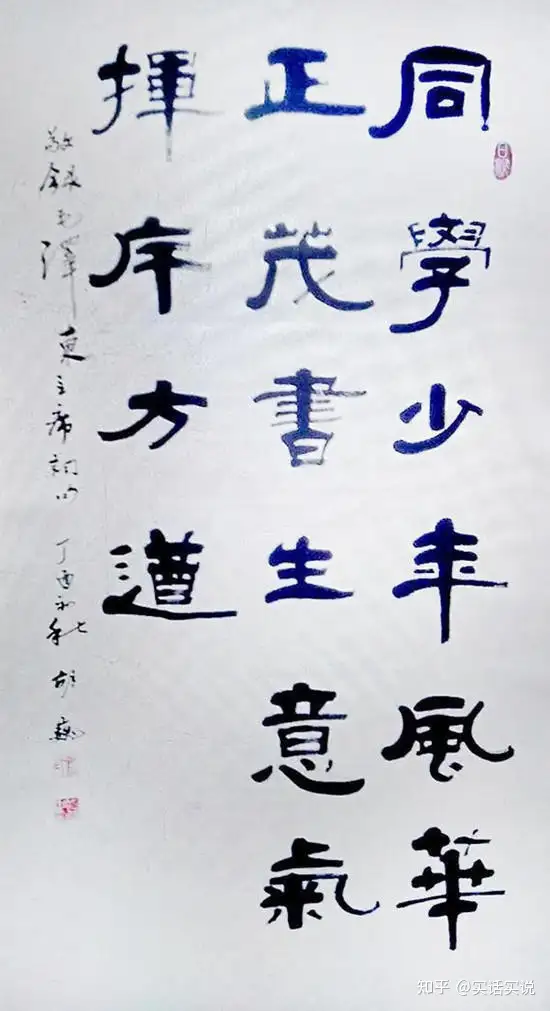 同學少年風華
正茂書生意氣
揮斥方遒
敬録毛澤東主席詞句 丁酉初秋 胡
知乎 @实话实说